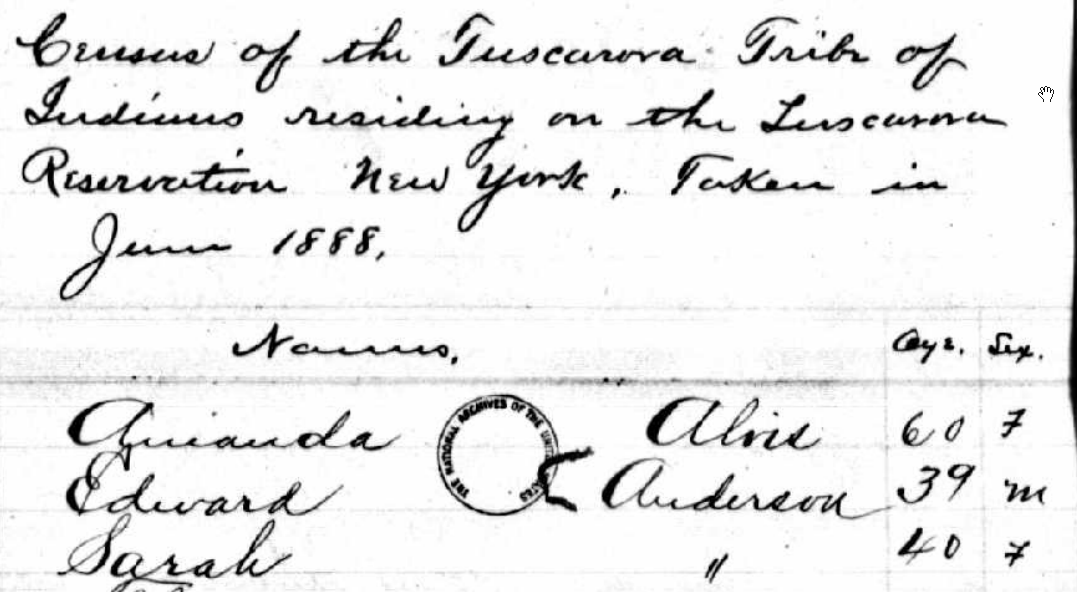 Census of the Tuscarora Tribe of
Indians residing on the Tuscarora
Reservation New York, Taken in
June 1888,
Names. Age. Sex.
Amanda Alvis 60 F
THE NATIONAL ARCHIVES OF THE UNITED STATES
Edward Anderson 39 m
Sarah " 40 F